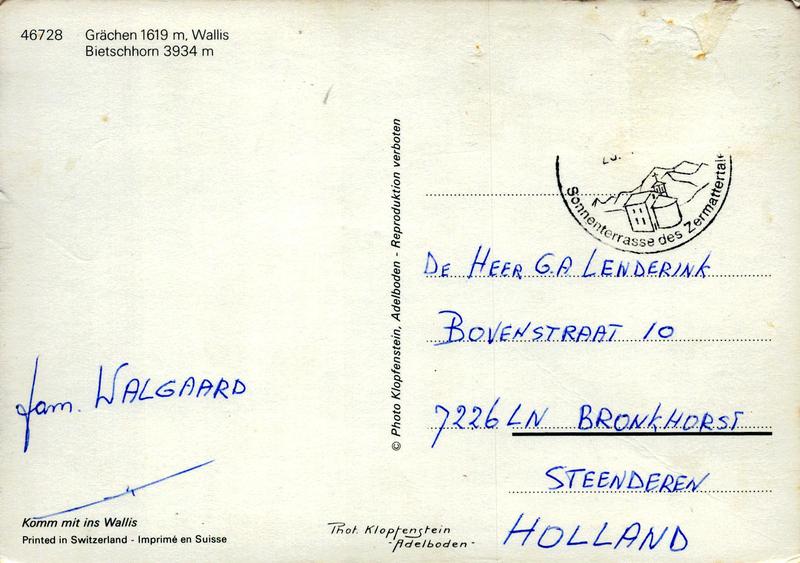 46728 Grächen 1619 m, Wallis
Bietschhorn 3934 m
© Photo Klopfenstein, Adelboden - Reproduktion verboten
Sonnenterrasse des Zermattertale
DE HEER G.A LENDERINK
BOVENSTRAAT 10
7226 LN BRONKHORST
STEENDEREN
HOLLAND
fam. WALGAARD
Komm mit ins Wallis
Printed in Switzerland - Imprimé en Suisse
Phot. Klopfenstein
- Adelboden -